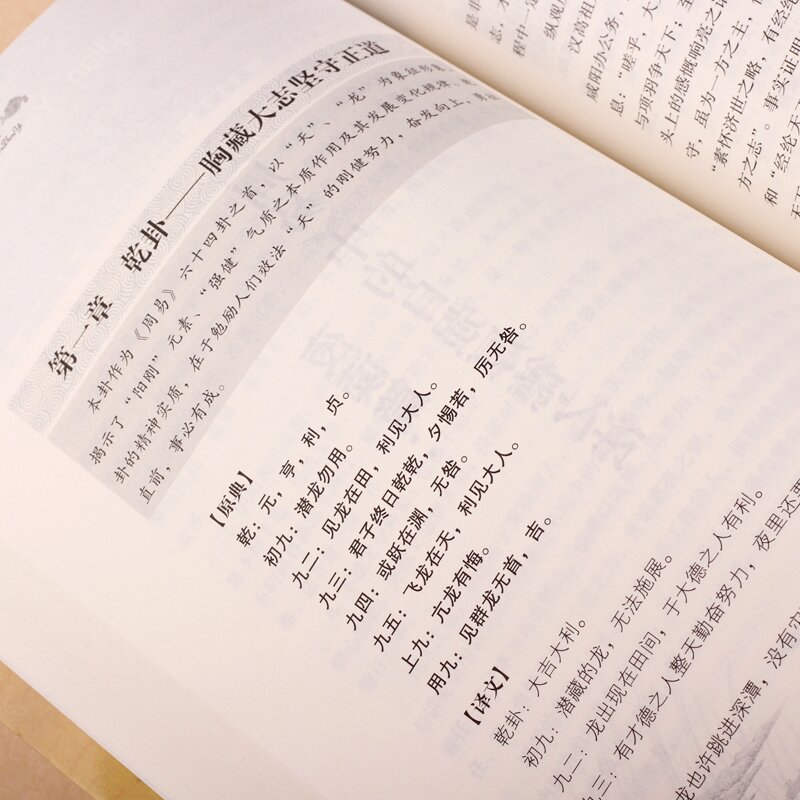 第一章 乾卦——胸藏大志坚守正道
本卦作为《周易》六十四卦之首，以“天”、“龙”为象征形象，
揭示了“阳刚”元素、“强健”气质之本质作用及其发展变化规律；
卦的精神实质，在于勉励人们效法“天”的刚健努力，奋发向上，勇往
直前，事必有成。
【原典】
乾：元，亨，利，贞。
初九：潜龙勿用。
九二：见龙在田，利见大人。
九三：君子终日乾乾，夕惕若，厉无咎。
九四：或跃在渊，无咎。
九五：飞龙在天，利见大人。
上九：亢龙有悔。
用九：见群龙无首，吉。
【译文】
乾卦：大吉大利。
初九：潜藏的龙，无法施展。
九二：龙出现在田间，于大德之人有利。
九三：有才德之人整天勤奋努力，夜里还要
龙也许跳进深潭，没有灾
是非
志，不
程中一定
纵观
汉高祖
咸阳办公务，
息：“嗟乎，大
与项羽争天下；至
头上的感慨响亮之
守，虽为一方之主，
“素怀济世之略，有经纶
方之志”。事实证明
和“经纶天